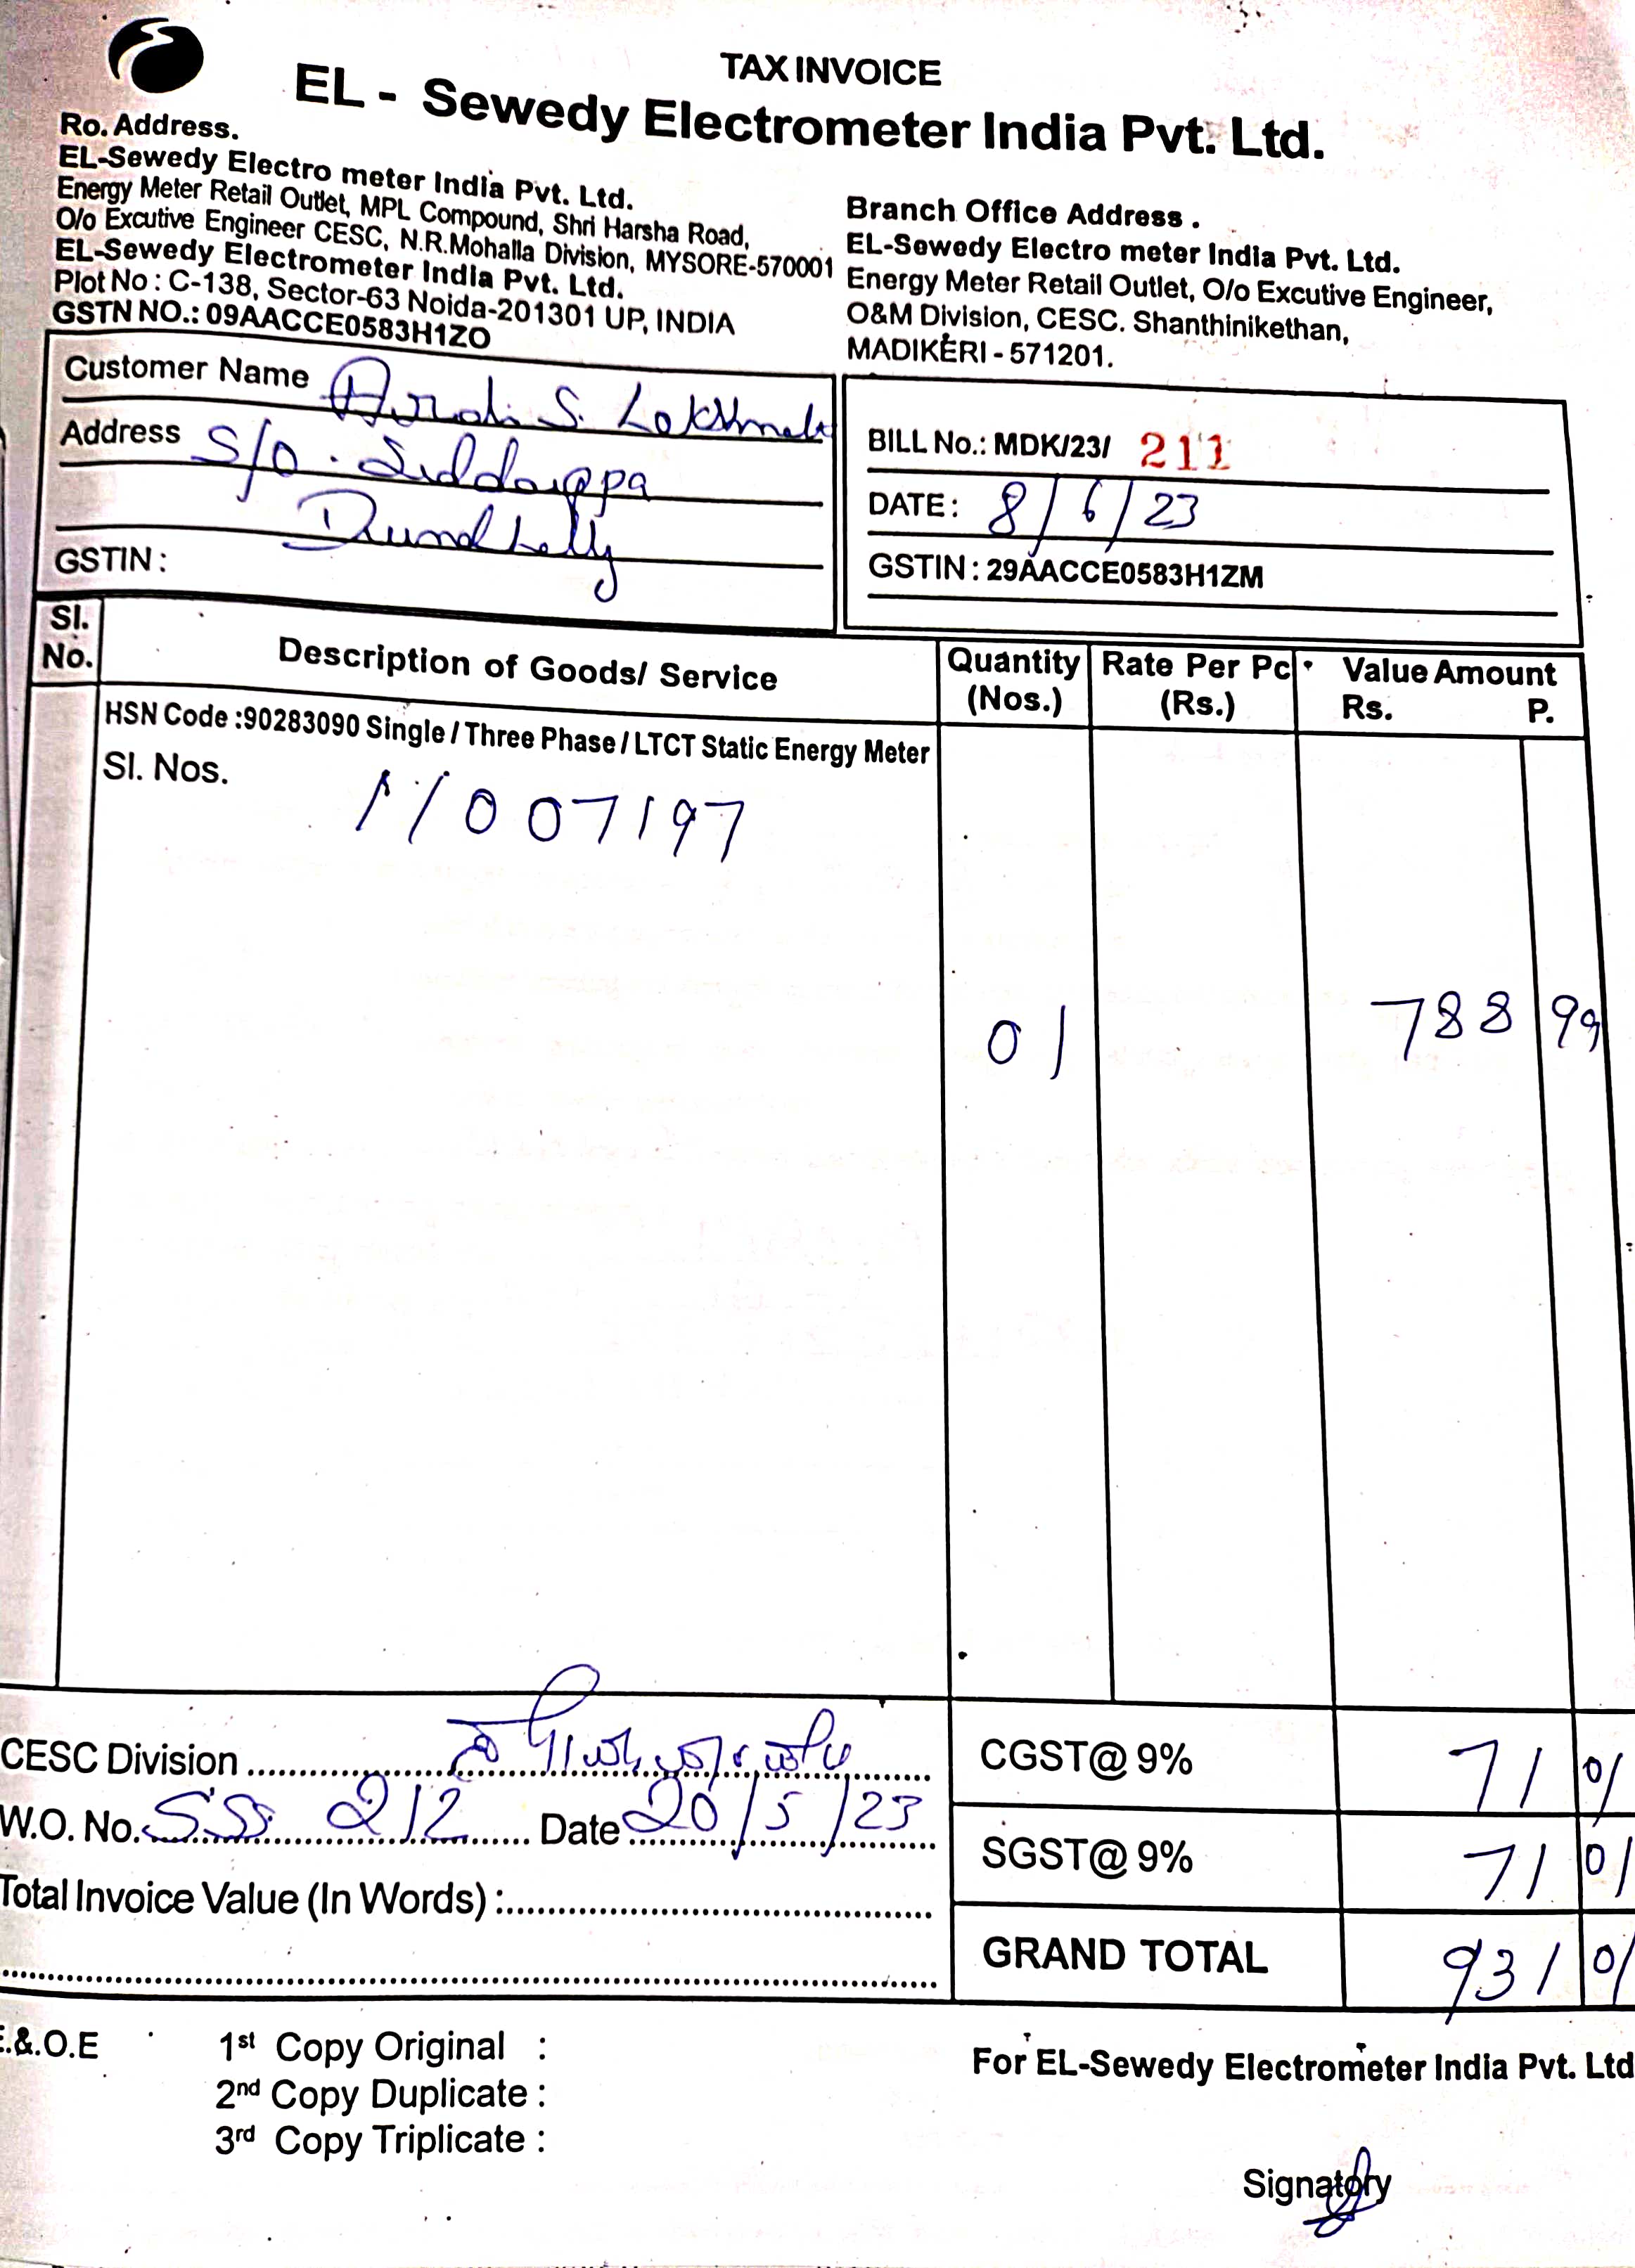 TAX INVOICE
EL - Sewedy Electrometer India Pvt. Ltd.
Ro. Address.
EL-Sewedy Electro meter India Pvt. Ltd.
Energy Meter Retail Outlet, MPL Compound, Shri Harsha Road,
O/o Excutive Engineer CESC, N.R.Mohalla Division, MYSORE-570001
EL-Sewedy Electrometer India Pvt. Ltd.
Plot No : C-138, Sector-63 Noida-201301 UP, INDIA
GSTN NO.: 09AACCE0583H1ZO
Branch Office Address .
EL-Sewedy Electro meter India Pvt. Ltd.
Energy Meter Retail Outlet, O/o Excutive Engineer,
O&M Division, CESC. Shanthinikethan,
MADIKERI - 571201.
Customer Name S.
Address S/o.
GSTIN :
BILL No.: MDK/23/ 211
DATE : 8/6/23
GSTIN : 29AACCE0583H1ZM
Sl. No. Description of Goods/ Service Quantity (Nos.) Rate Per Pc (Rs.) Value Amount Rs. P.
HSN Code :90283090 Single / Three Phase / LTCT Static Energy Meter
Sl. Nos. 11007197
01 788 99
CESC Division
CGST@ 9% 71 01
W.O. No. SSS 212 Date 20/5/23
SGST@ 9% 71 01
Total Invoice Value (In Words) :
GRAND TOTAL 931 01
E.&.O.E
1st Copy Original :
2nd Copy Duplicate :
3rd Copy Triplicate :
For EL-Sewedy Electrometer India Pvt. Ltd
Signatory